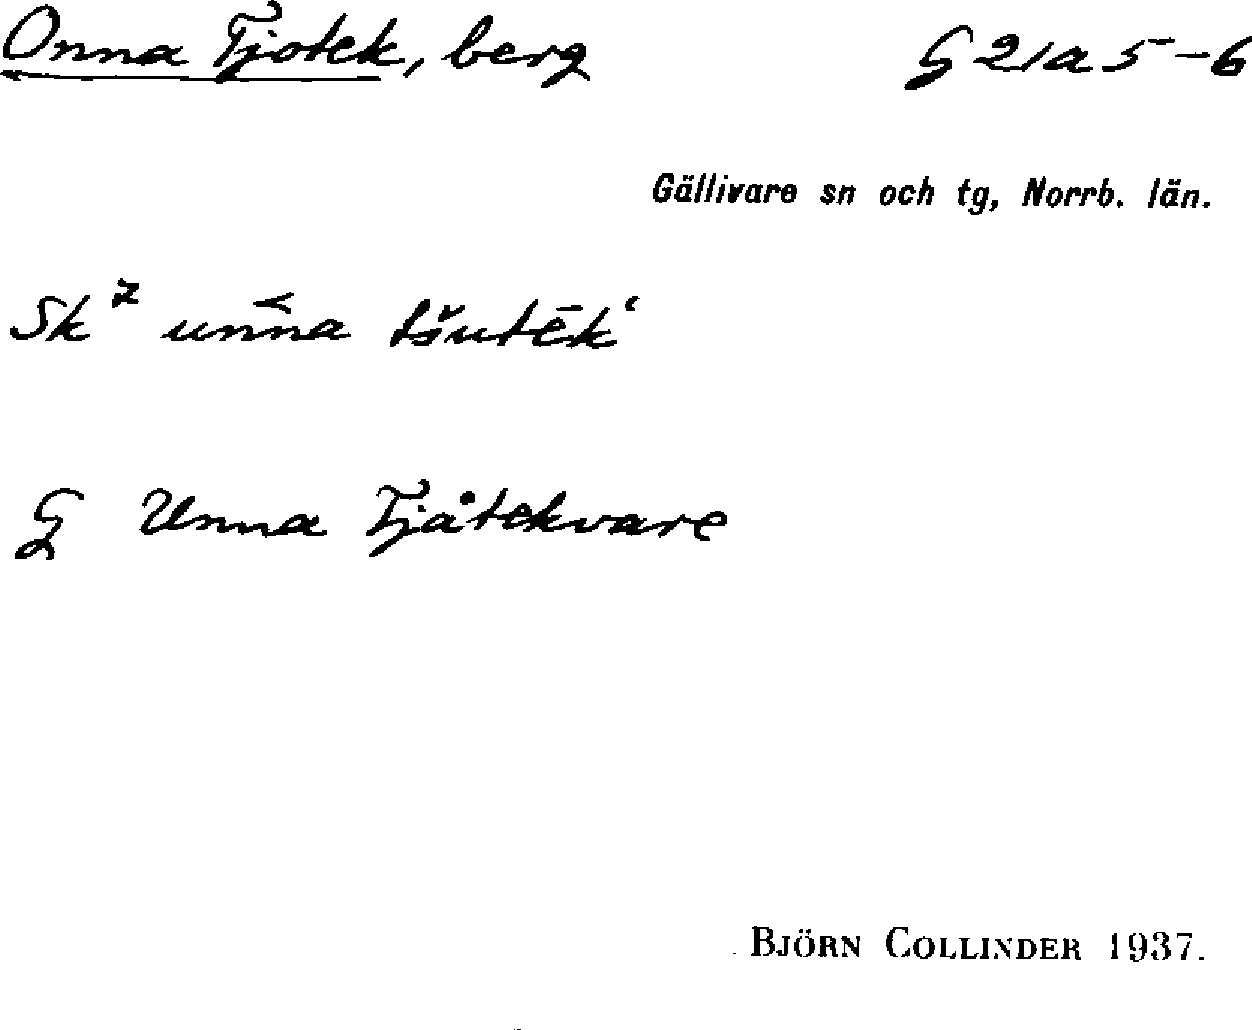 Onna Tjotek, berg G 21a 5-6
Gällivare sn och tg, Norrb. län.
Sk⁷ unna tšutēkʻ
G Unna Tjåtekvare
BJÖRN COLLINDER 1937.